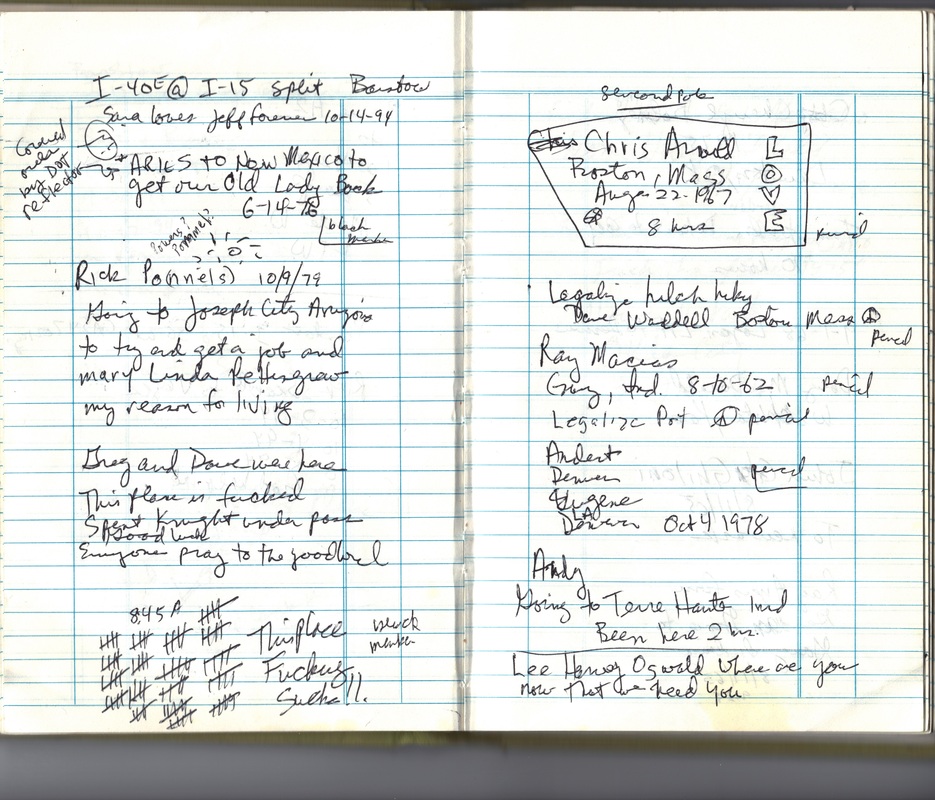 I-40E @ I-15 split Barstow
Sara Loves Jeff Forever 10-14-94
Covered
under
by DOT
reflector
ARIES to New Mexico to
get our Old Lady Back
6-14-78
black
marker
Powers?
Pommel?
Rick Po(nnels) 10/9/79
Going to Joseph City Arizona
to try and get a job and
mary Linda Pettisgrew
my reason for living
Greg and Dave was here
This place is fucked
Spent Knight under pass
Good luck
Everyone pray to the good lord
8:45 A
This Place
Fucking
Sucks!!
black
marker
second pole
Chris Arnold
Boston, Mass
Auge 22-1967
8 hrs
L
O
V
E
pencil
Legalize hitch hiking
Dave Waddell Boston Mass
pencil
Ray Macias
Gary, Ind. 8-10-62 pencil
Legalize Pot pencil
Andert
Denver
pencil
Eugene
LA
Denver Oct 4 1978
Andy
Going to Terre Haute Ind
Been here 2 hrs.
Lee Harvey Oswald where are you
now that we need you